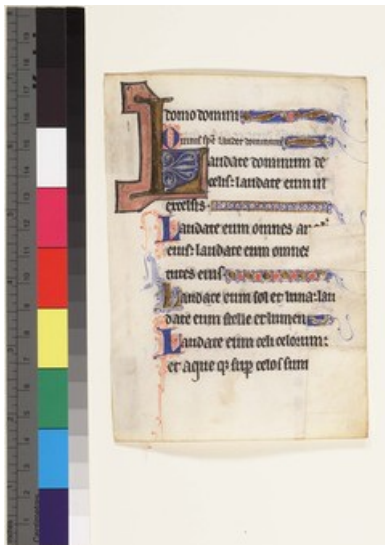 domo domini
Omnis spc laudet dominum
Laudate dominum de
celis: laudate eum in
excelsis
Laudate eum omnes
eius: laudate eum omnes
tutes eius
Laudate eum sol et luna: lau
date eum stelle et lumen
Laudate eum celi celorum:
et aque q̄ sup celos sunt